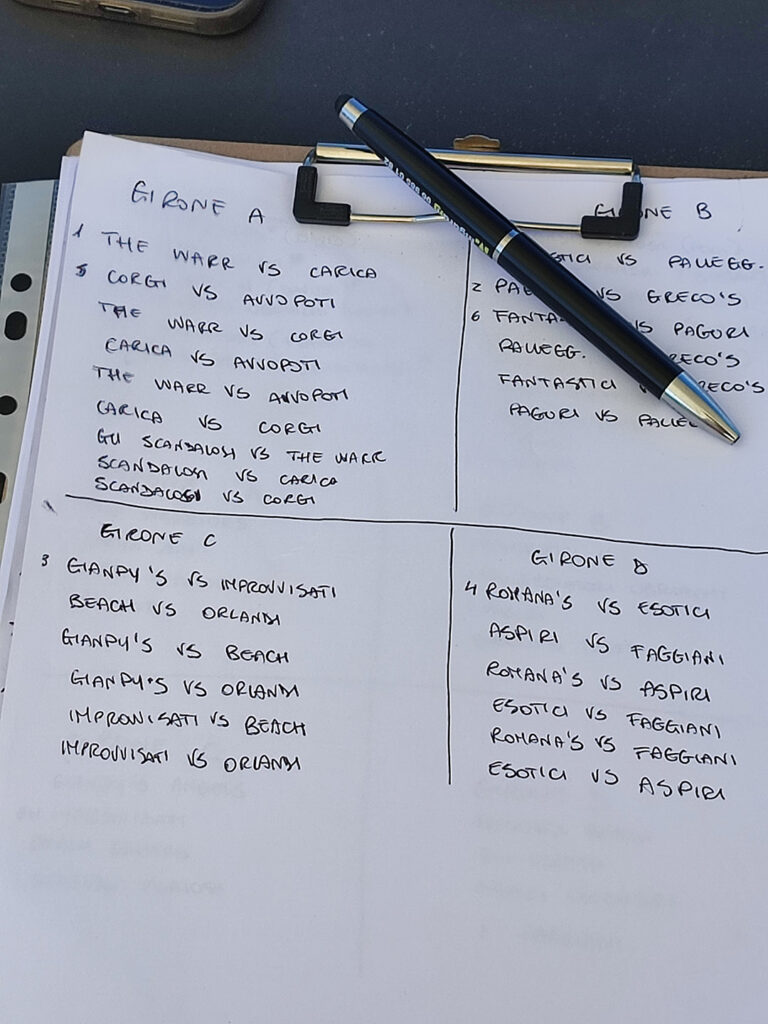 GIRONE A
1 THE WARR VS CARICA
5 CORGI VS AVVOPOTI
THE WARR VS CORGI
CARICA VS AVVOPOTI
THE WARR VS AVVOPOTI
CARICA VS CORGI
GLI SCANDALOSI VS THE WARR
SCANDALOSI VS CARICA
SCANDALOSI VS CORGI
GIRONE B
VS PALLEGG.
2 VS GRECO'S
6 VS PAGURI
PALLEGG.
FANTASTICI
PAGURI VS
GIRONE C
3 GIANPY'S VS IMPROVVISATI
BEACH VS ORLANDI
GIANPY'S VS BEACH
GIANPY'S VS ORLANDI
IMPROVVISATI VS BEACH
IMPROVVISATI VS ORLANDI
GIRONE D
4 ROMANA'S VS ESOTICI
ASPIRI VS FAGGIANI
ROMANA'S VS ASPIRI
ESOTICI VS FAGGIANI
ROMANA'S VS FAGGIANI
ESOTICI VS ASPIRI